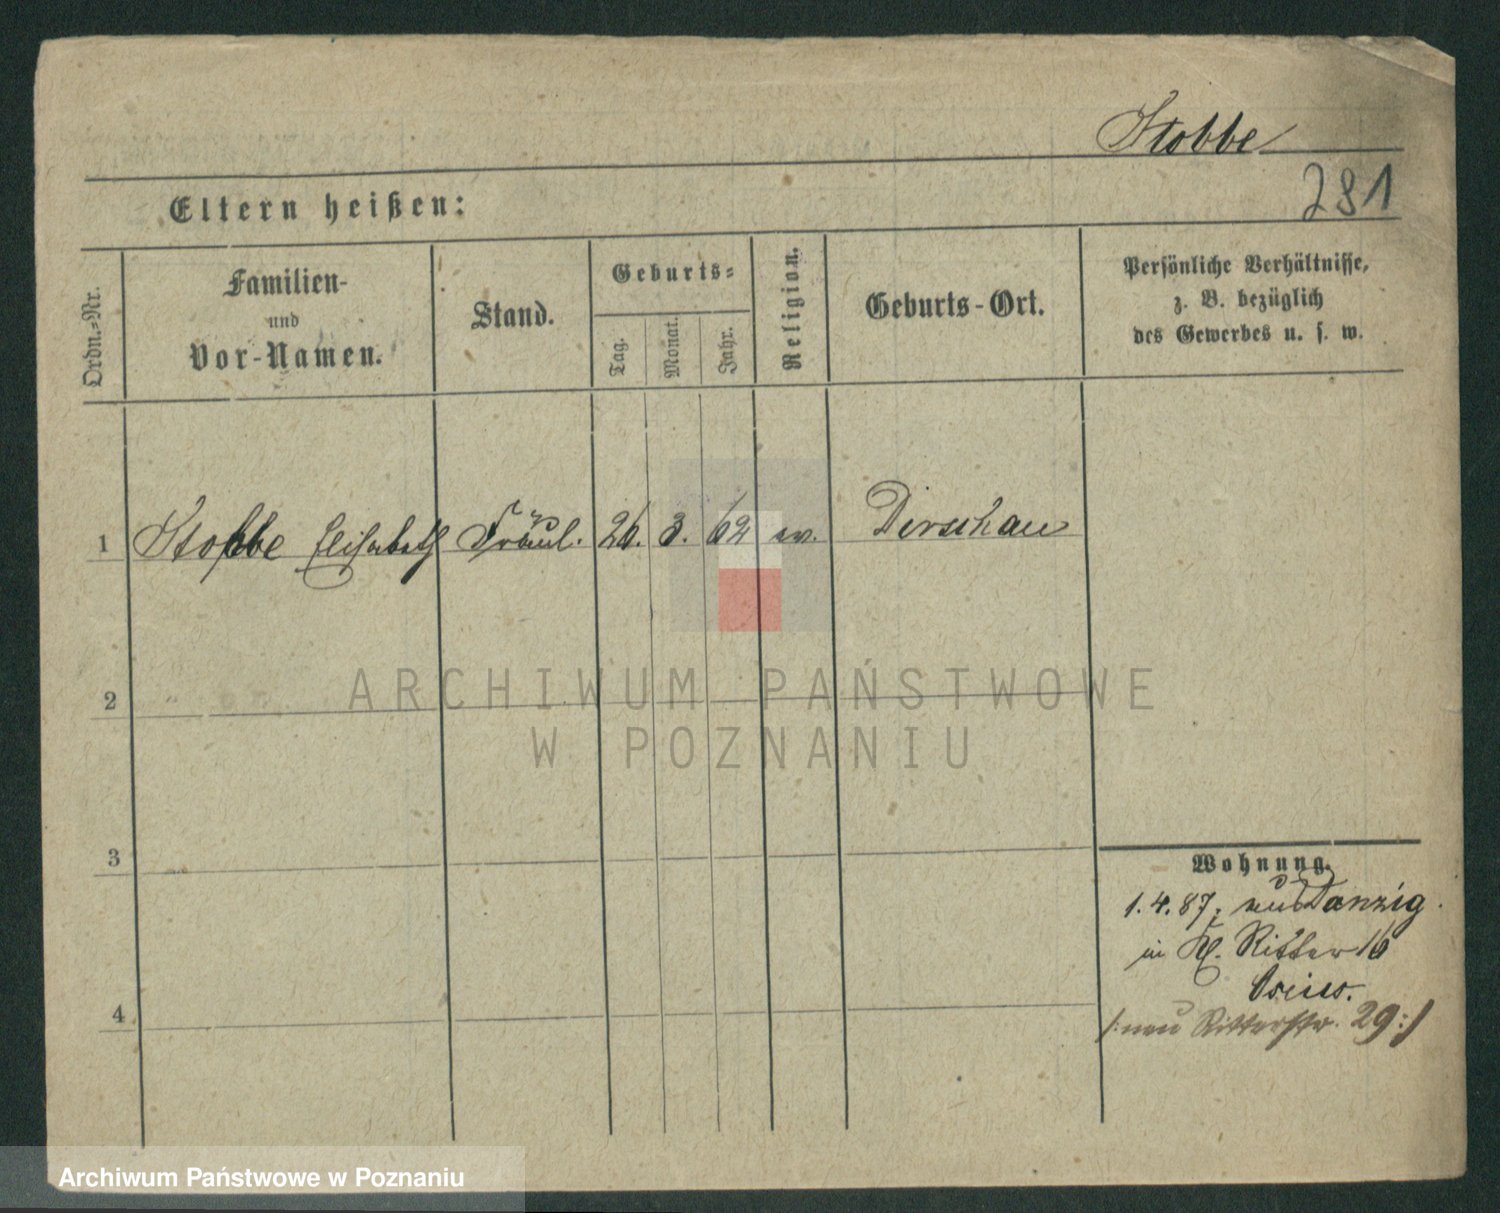 Stobbe
281
Eltern heißen:
Ordn.-Nr.
Familien-
und
Vor-Namen.
Stand.
Geburts-
Tag.
Monat.
Jahr.
Religion.
Geburts-Ort.
Persönliche Verhältnisse,
z. B. bezüglich
des Gewerbes u. s. w.
1 Stobbe Elisabeth Fräul. 26. 3. 62 ev. Dirschau
2
3
4
Wohnung.
1.4.87, aus Danzig.
in Kl. Ritter 16
/: neu Ritterstr. 29 :/
ARCHIWUM PAŃSTWOWE
W POZNANIU
Archiwum Państwowe w Poznaniu